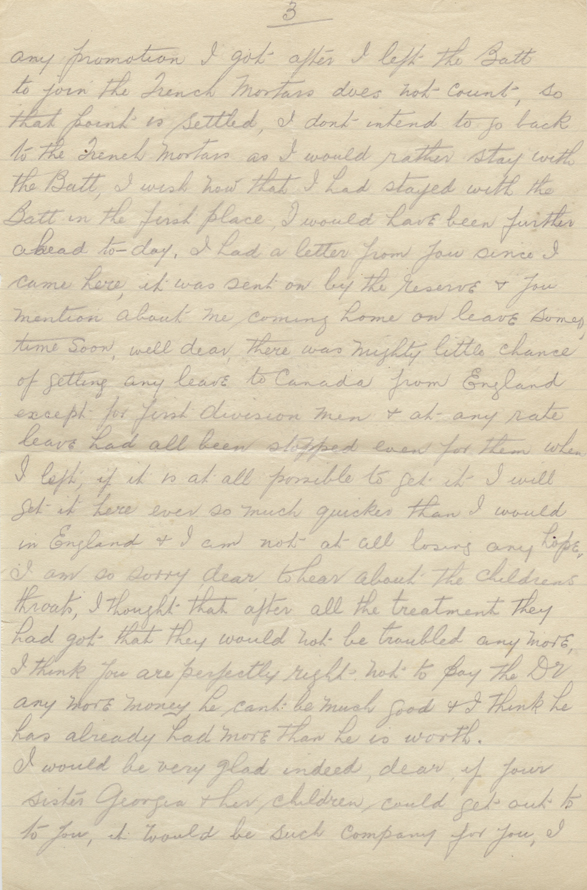 3
any promotion I got after I left the Batt
to join the Trench Mortars does not count, so
that point is settled, I dont intend to go back
to the Trench Mortars as I would rather stay with
the Batt, I wish now that I had stayed with the
Batt in the first place, I would have been further
ahead to-day. I had a letter from you since I
came here, it was sent on by the reserve & you
mention about me coming home on leave some
time soon, well dear, there was mighty little chance
of getting any leave to Canada from England
except for first division men & at any rate
leave had all been stopped even for them when
I left, if it is at all possible to get it I will
get it here ever so much quicker than I would
in England & I am not at all losing any hope,
I am so sorry dear, to hear about the childrens
throats, I thought that after all the treatment they
had got that they would not be troubled any more,
I think you are perfectly right not to pay the Dr
any more money he cant be much good & I think he
has already had more than he is worth.
I would be very glad indeed, dear, if your
sister Georgia & her children, could get out to
to you, it would be such company for you, I